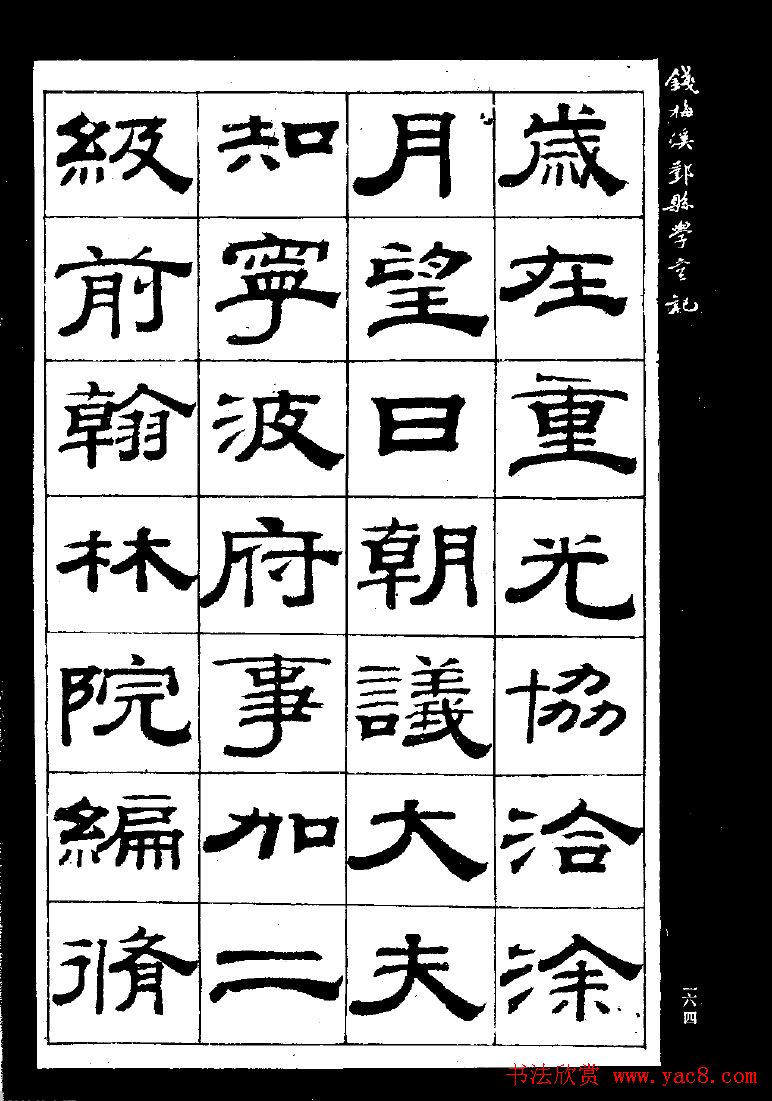 錢梅溪鄞縣學宮記
歲在重光協洽涂
月望日朝議大夫
知寧波府事加二
級前翰林院編脩
一六四
书法欣赏 www.yac8.com